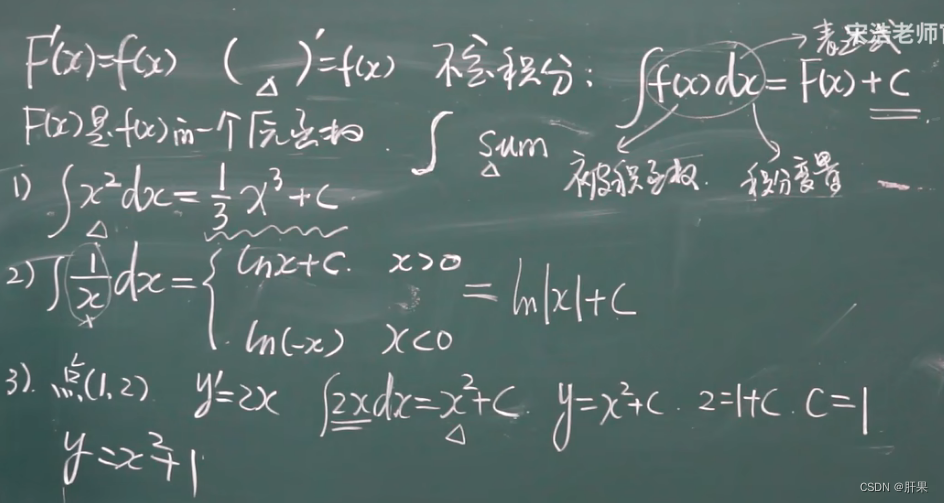 宋浩老师官
F'(x)=f(x) (   )'=f(x) 不定积分: ∫f(x)dx=F(x)+C
表达式
F(x)是f(x)的一个原函数. ∫ sum 被积函数. 积分变量
1) ∫x²dx=1/3 x³+C
2) ∫1/x dx={ lnx+C. x>0
ln(-x) x<0 =ln|x|+C
3). 点(1,2) y'=2x ∫2xdx=x²+C. y=x²+C. 2=1+C. C=1
y=x²+1
CSDN @肝果